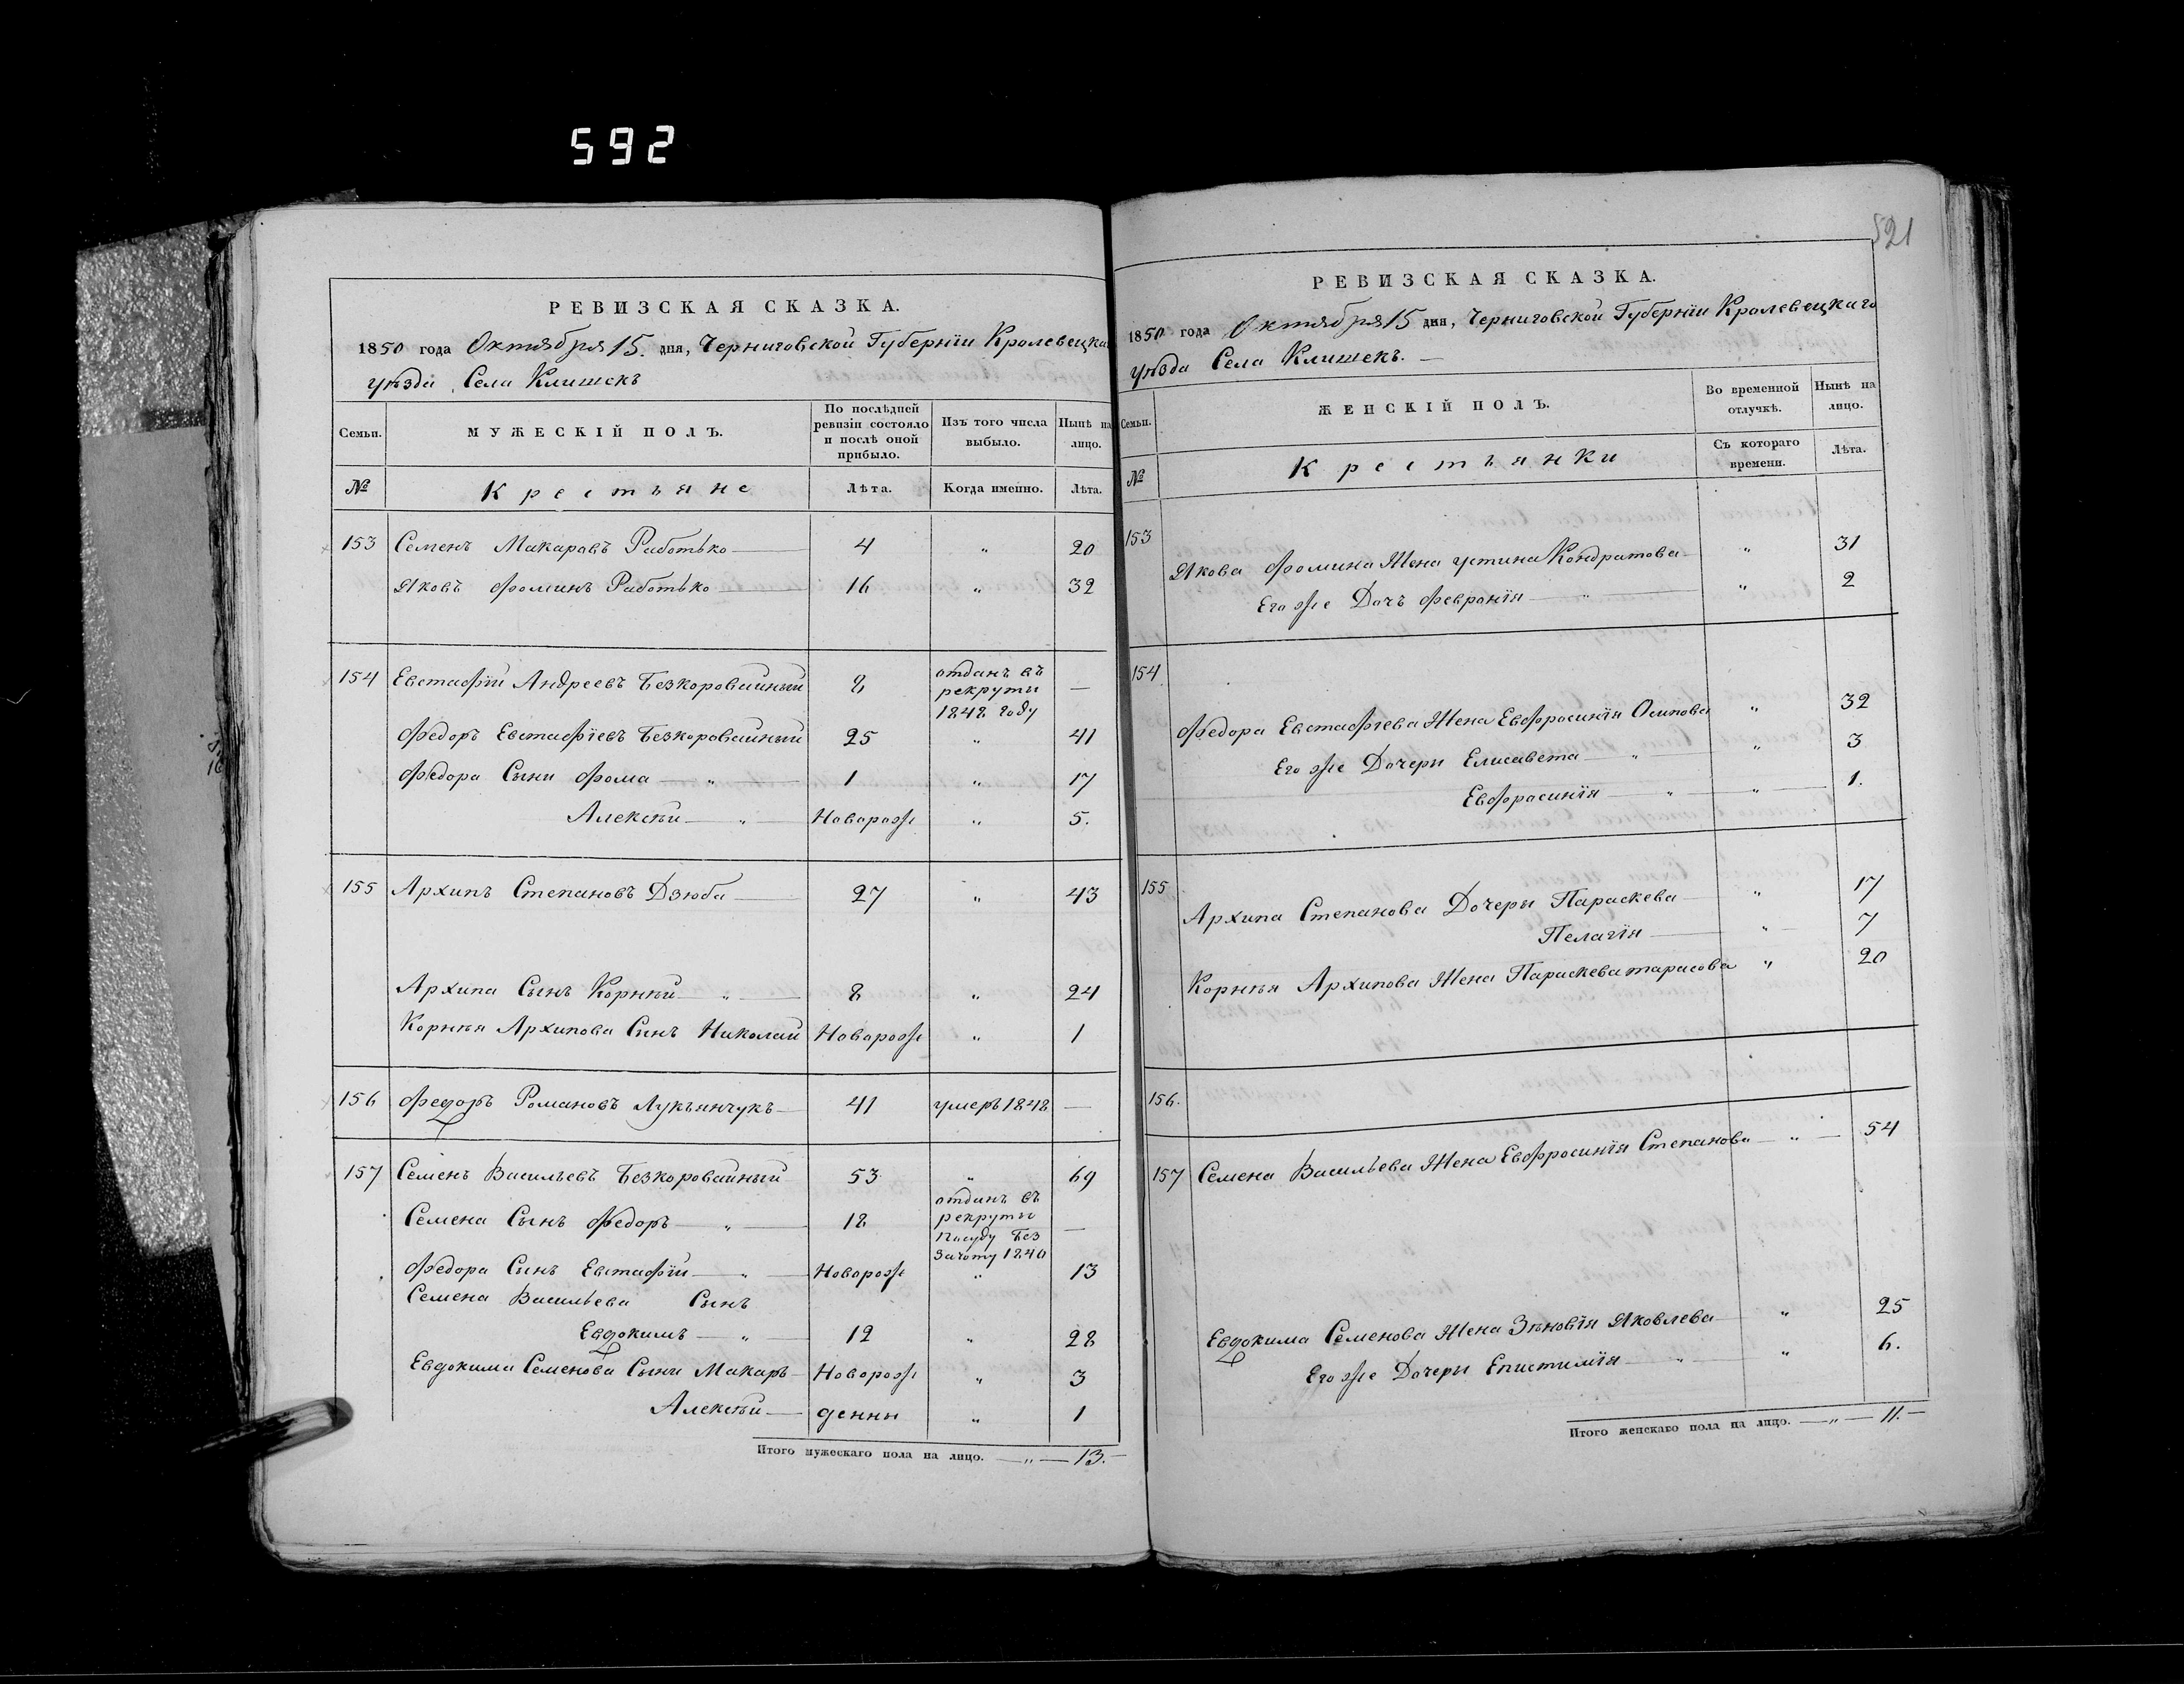 592
521
РЕВИЗСКАЯ СКАЗКА.
1850 года Октября 15. дня, Черниговской Губернiи Кролевецка
уѣзда Села Клишекъ
Семьи.
МУЖЕСКІЙ ПОЛЪ.
По послѣдней ревизіи состояло и послѣ оной прибыло.
Изъ того числа выбыло.
Нынѣ на лицо.
№
Крестьяне
Лѣта.
Когда именно.
Лѣта.
153 Семенъ Макаровъ Работько — 4 " 20
Яковъ Фоминъ Работько — 16 " 32
154 Евстафiй Андреевъ Безкоровайный 8 отданъ въ рекруты 1848 году —
Федоръ Евстафiевъ Безкоровайный 25 " 41
Федора Сыни Фома — " — 1 " 17
Алексѣй — " — Новорож " 5.
155 Архипъ Степановъ Дзюба — 27 " 43
Архипа Сынъ Корнѣй — " — 8 " 24
Корнѣя Архипова Сынъ Николай Новорож " 1
156 Федоръ Романовъ Лукъянчукъ — 41 умеръ 1848 —
157 Семенъ Васильевъ Безкоровайный 53 " 69
Семена Сынъ Федоръ — " — 18 отданъ въ рекруты Без зачоту 1840 —
Федора Сынъ Евстафiй — " — Новорож " 13
Семена Васильева Сынъ
Евдокимъ — " — 12 " 28
Евдокима Семенова Сыни Макаръ — Новорож " 3
Алексѣй — денны " 1
Итого мужескаго пола на лицо. — " — 13. —
РЕВИЗСКАЯ СКАЗКА.
1850 года Октября 15 дня, Черниговской Губернiи Кролевецкаго
уѣзда Села Клишекъ. —
Семьи.
ЖЕНСКІЙ ПОЛЪ.
Во временной отлучкѣ.
Нынѣ на лицо.
№
Крестьянки
Съ котораго времени.
Лѣта.
153
Якова Фомина Жена Устина Кондратова — " 31
Его же Дочъ Февронiя — " — " 2
154
Федора Евстафiева Жена Евфросинiя Осипова " 32
Его же Дочери Елисавета — " — " 3
Евфросинiя — " — " — 1.
155
Архипа Степанова Дочери Параскева — " 17
Пелагiя — " — 7
Корнѣя Архипова Жена Параскева Тарасова " 20
156.
157 Семена Васильева Жена Евфросинiя Степанова — " — 54
Евдокима Семенова Жена Зѣновiя Яковлева — " 25
Его же Дочери Епистимiя — " — " 6.
Итого женскаго пола на лицо. — " — 11. —